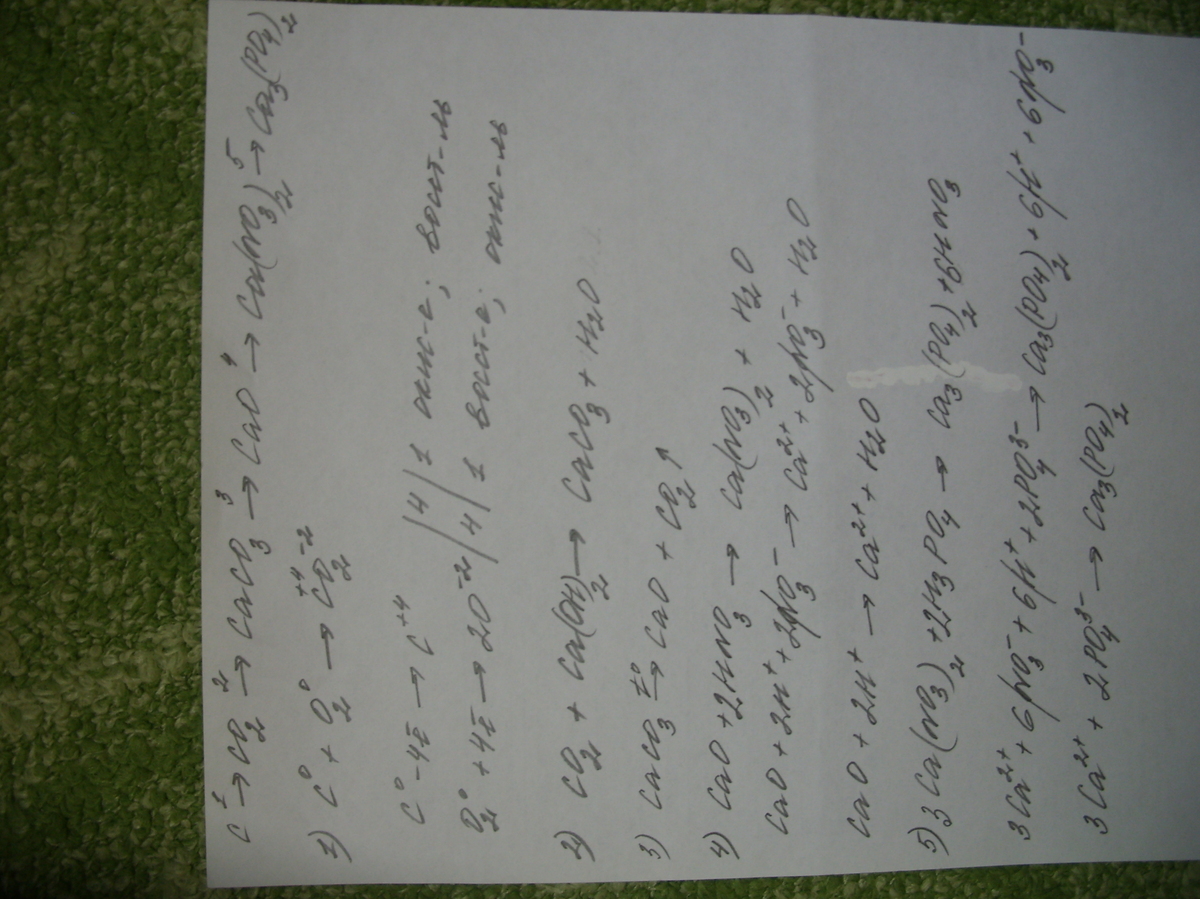 C →¹ CO₂ →² CaCO₃ →³ CaO →⁴ Ca(NO₃)₂ →⁵ Ca₃(PO₄)₂
1) C⁰ + O₂⁰ → C⁺⁴O₂⁻²
C⁰ - 4ē → C⁺⁴ |4| 1 окис-е; восст-ль
O₂⁰ + 4ē → 2O⁻² |4| 1 восст-е; окис-ль
2) CO₂ + Ca(OH)₂ → CaCO₃ + H₂O
3) CaCO₃ →t⁰ CaO + CO₂↑
4) CaO + 2HNO₃ → Ca(NO₃)₂ + H₂O
CaO + 2H⁺ + 2NO₃⁻ → Ca²⁺ + 2NO₃⁻ + H₂O
CaO + 2H⁺ → Ca²⁺ + H₂O
5) 3Ca(NO₃)₂ + 2H₃PO₄ → Ca₃(PO₄)₂ + 6HNO₃
3Ca²⁺ + 6NO₃⁻ + 6H⁺ + 2PO₄³⁻ → Ca₃(PO₄)₂ + 6H⁺ + 6NO₃⁻
3Ca²⁺ + 2PO₄³⁻ → Ca₃(PO₄)₂